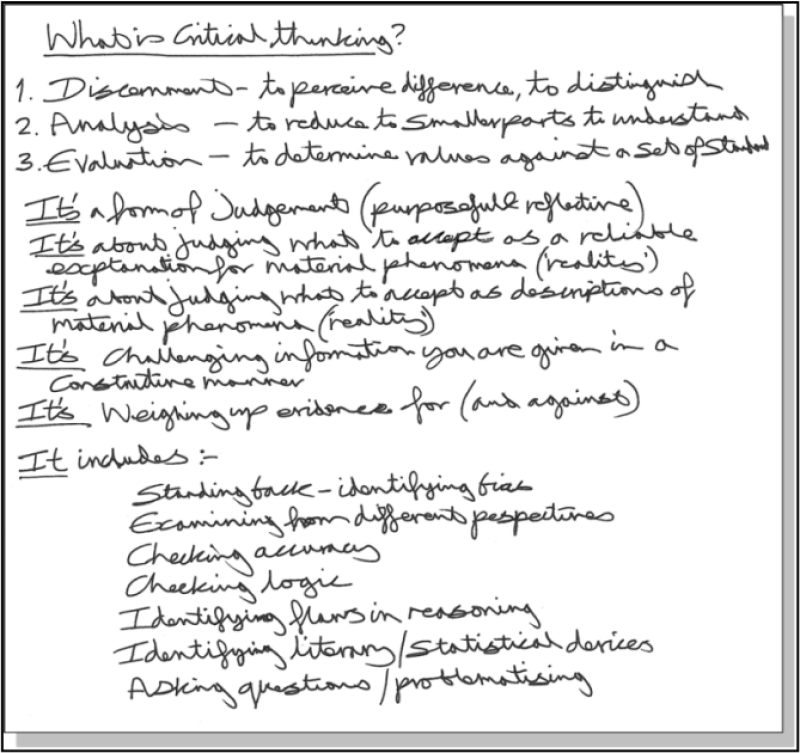 What is Critical thinking?
1. Discernment - to perceive difference, to distinguish
2. Analysis - to reduce to smaller parts to understand
3. Evaluation - to determine values against a set of standard
It's a form of judgement (purposeful & reflective)
It's about judging what to accept as a reliable
explanation for material phenomena ('realities')
It's about judging what to accept as descriptions of
material phenomena (reality')
It's Challenging information you are given in a
Constructive manner
It's Weighing up evidence for (and against)
It includes :-
Standing back - identifying bias
Examining from different perspectives
Checking accuracy
Checking logic
Identifying flaws in reasoning
Identifying literary/statistical devices
Asking questions/problematising